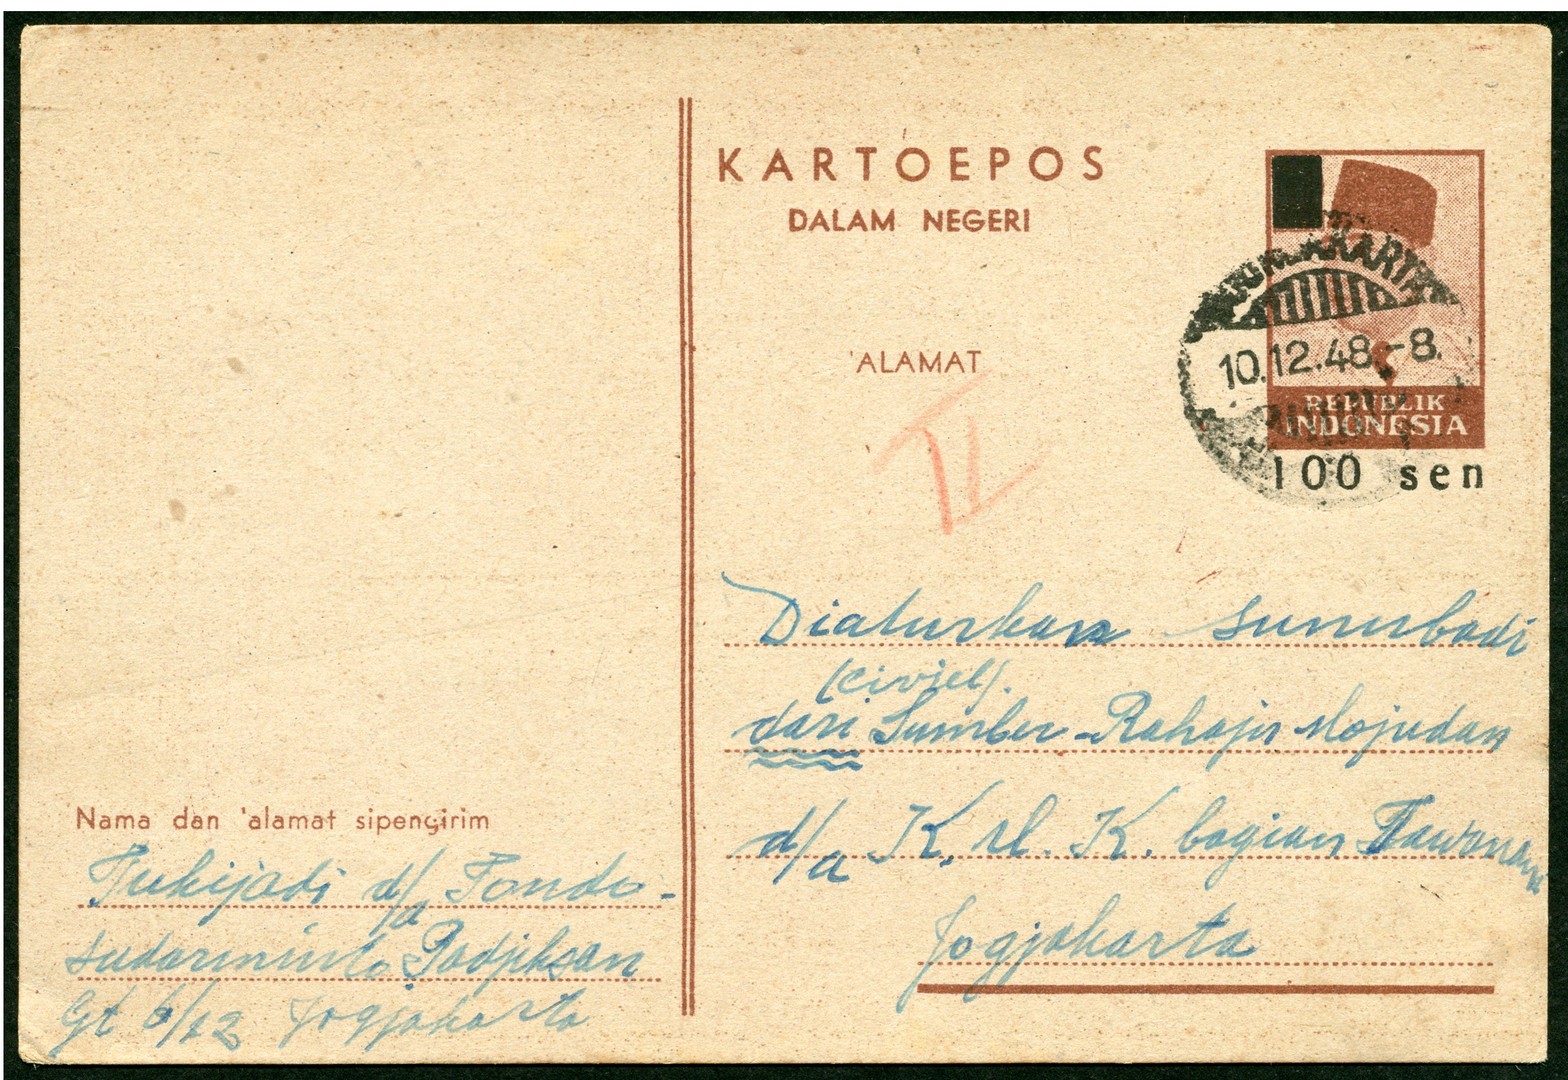 KARTOEPOS
DALAM NEGERI
'ALAMAT
10.12.48.-8.
REPUBLIK
INDONESIA
100 sen
Diaturkan
(civiel).
dari Sumber-Rahajn Mojudan
d/a K. rl. K. bagian
Jogjakarta
Nama dan 'alamat sipengirim
Tukijadi d/a Tondo-
sudarminto Padjeksan
Gt 6/12 Jogjakarta